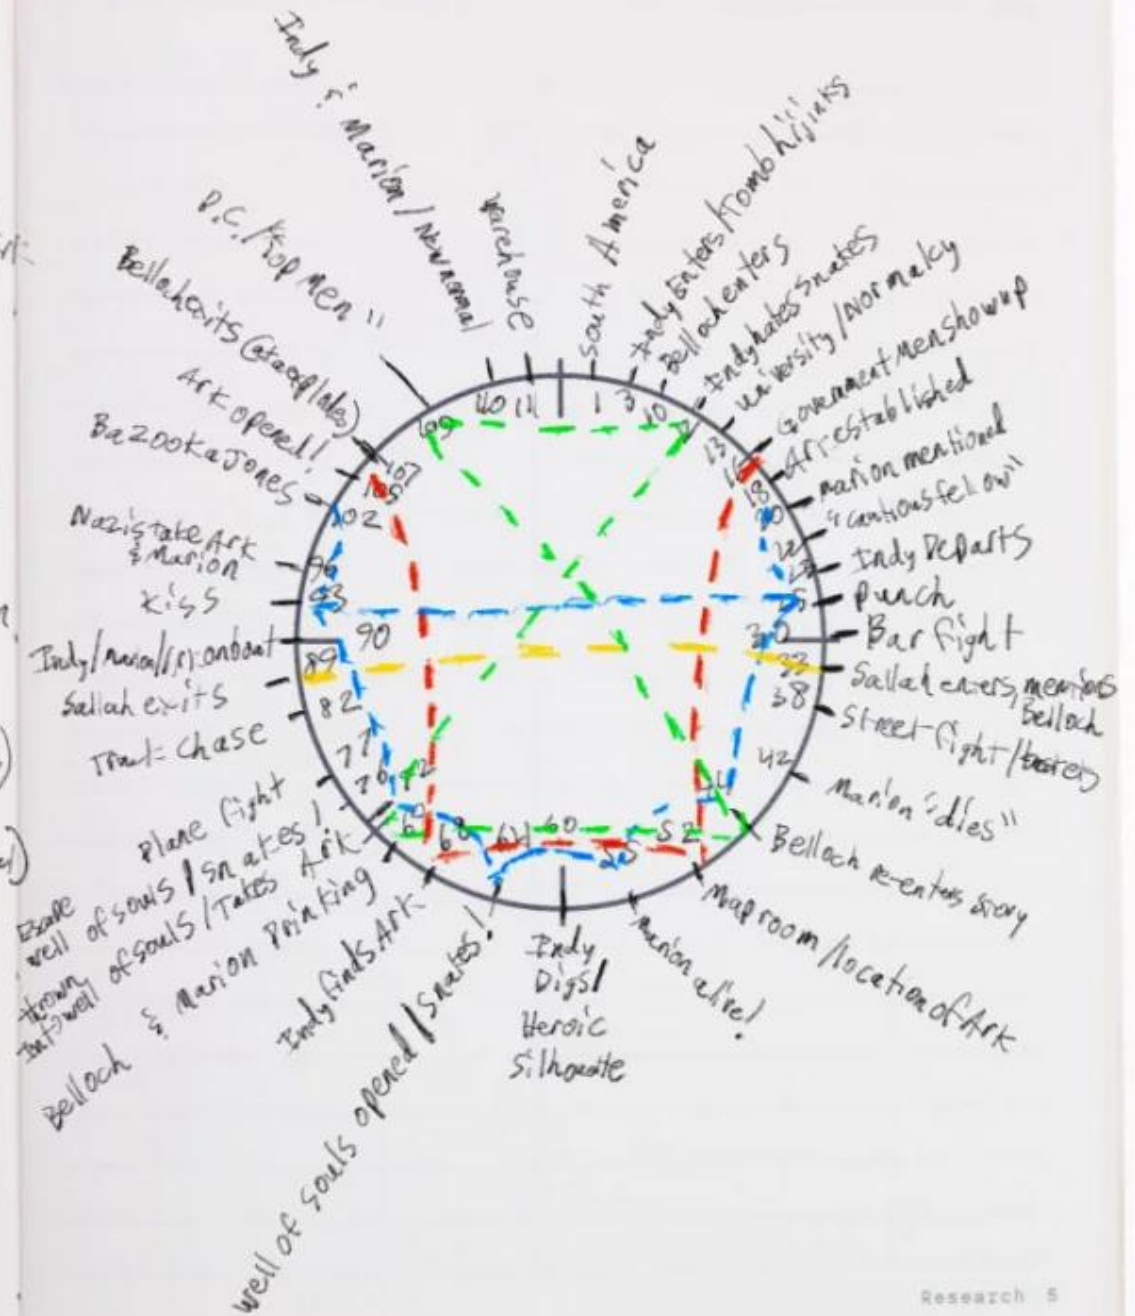 South America
Indy Enters/tomb hijinks
Belloch enters
Indy hates snakes
university/Normalcy
Government men show up
Ark established
marion mentioned
"cautious fellow"
Indy Departs
Punch
Bar fight
Sallah enters, mentions
Belloch
Street fight/
Marion "dies"
Belloch re-enters story
Map room/location of Ark
Marion alive!
Indy
Digs/
Heroic
Silhouette
well of souls opened/snakes!
Indy finds Ark
Belloch & Marion Drinking
thrown
Into well of souls/Takes Ark
Escape
well of souls/snakes!
Plane fight
Truck Chase
Sallah exits
Indy/Marion/ on boat
Kiss
Nazis take Ark
& Marion
Bazooka Jones
Ark opened!
Belloch exits
D.C./"Top Men"
Indy & Marion/New normal
warehouse
1
3
10
13
18
30
33
38
42
52
60
68
77
82
89
90
93
96
102
105
107
Research 5